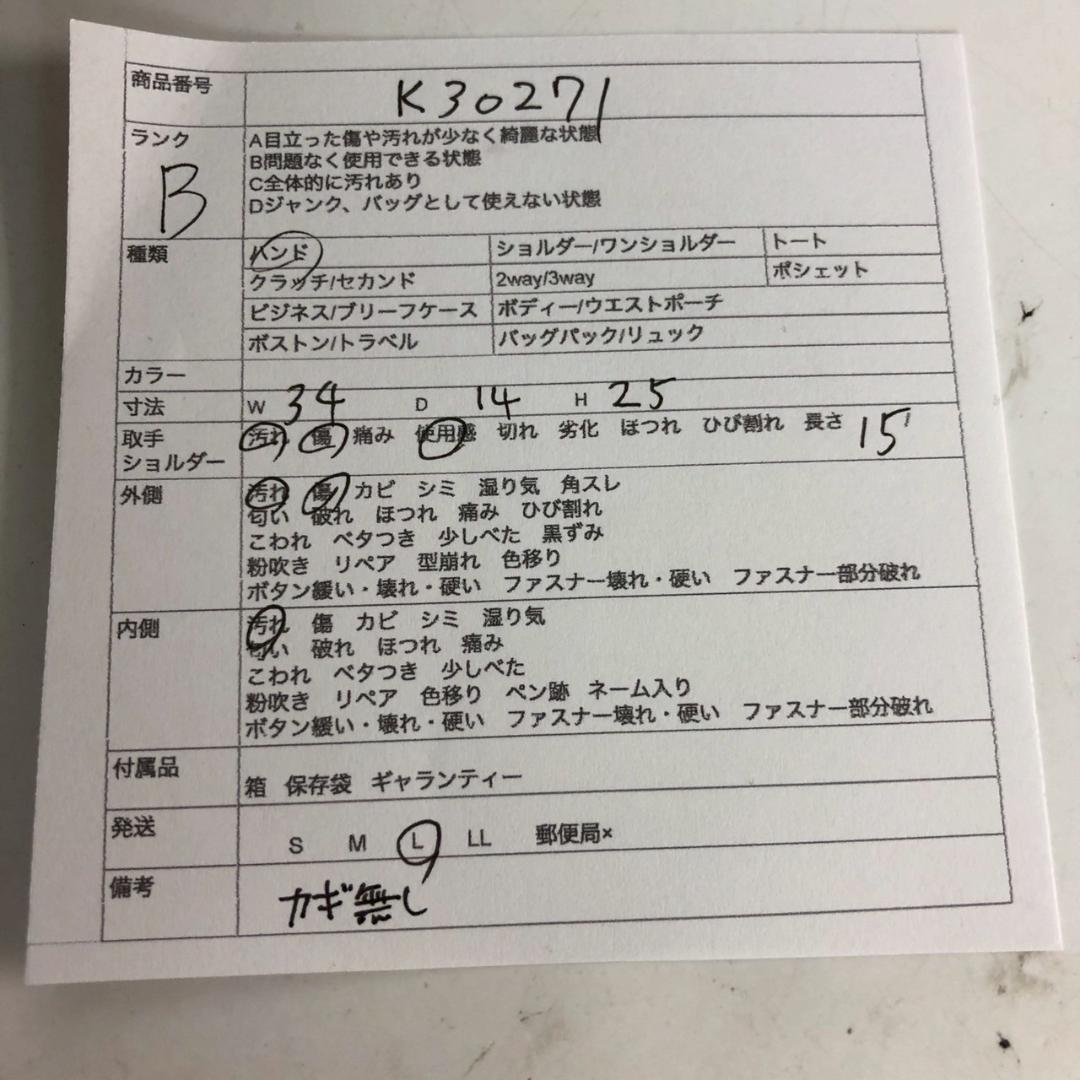 商品番号 K30271
ランク B
A目立った傷や汚れが少なく綺麗な状態
B問題なく使用できる状態
C全体的に汚れあり
Dジャンク、バッグとして使えない状態
種類 ハンド ショルダー/ワンショルダー トート
クラッチ/セカンド 2way/3way ポシェット
ビジネス/ブリーフケース ボディー/ウエストポーチ
ボストン/トラベル バッグパック/リュック
カラー
寸法 W 34 D 14 H 25
取手 汚れ 傷 痛み 使用感 切れ 劣化 ほつれ ひび割れ 長さ 15
ショルダー
外側 汚れ 傷 カビ シミ 湿り気 角スレ
匂い 破れ ほつれ 痛み ひび割れ
こわれ ベタつき 少しべた 黒ずみ
粉吹き リペア 型崩れ 色移り
ボタン緩い・壊れ・硬い ファスナー壊れ・硬い ファスナー部分破れ
内側 汚れ 傷 カビ シミ 湿り気
匂い 破れ ほつれ 痛み
こわれ ベタつき 少しべた
粉吹き リペア 色移り ペン跡 ネーム入り
ボタン緩い・壊れ・硬い ファスナー壊れ・硬い ファスナー部分破れ
付属品 箱 保存袋 ギャランティー
発送 S M L LL 郵便局×
備考 カギ無し